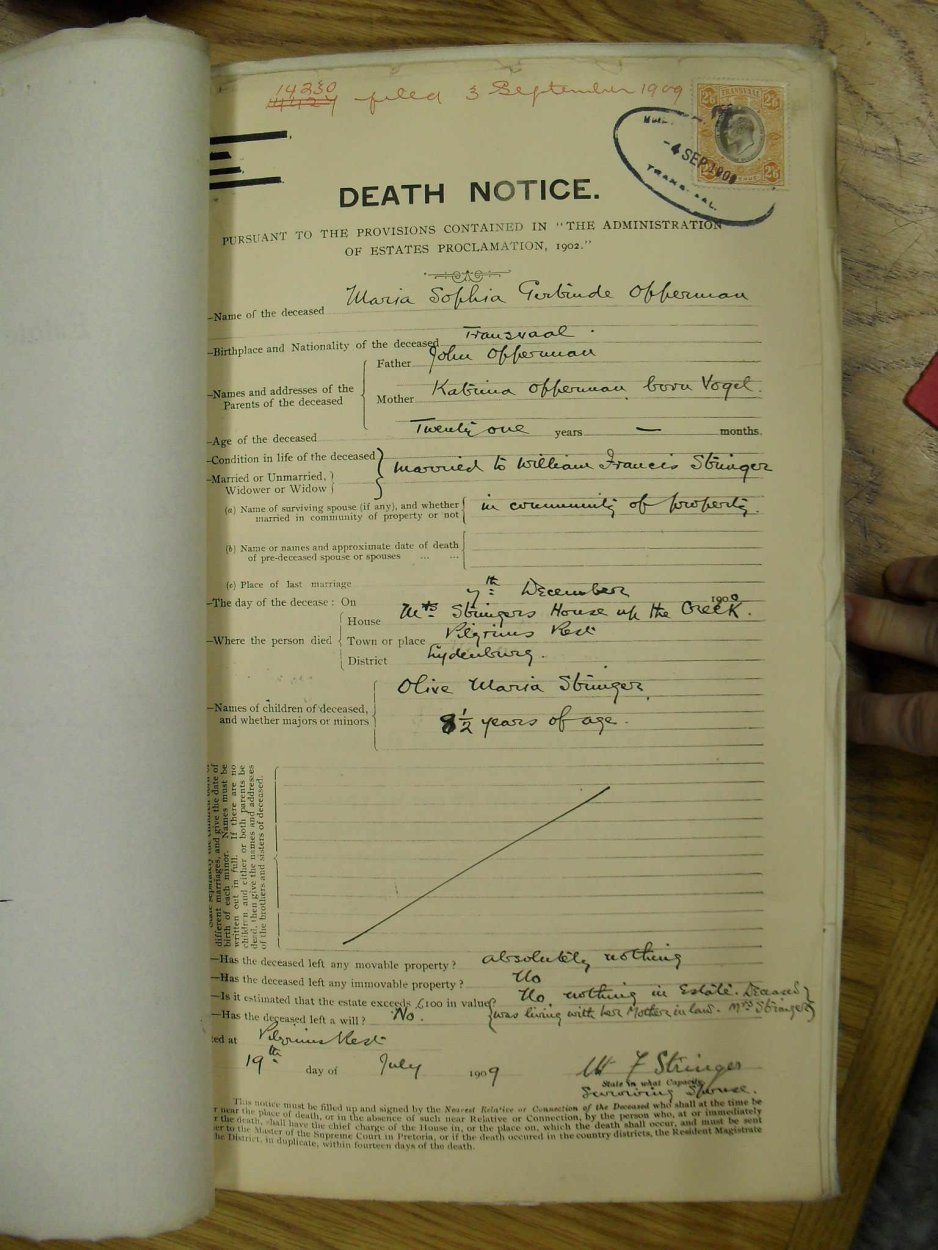 14230
14424 filed 3 September 1909
TRANSVAAL
2/6 2/6
-4 SEP 1909
2/6
DEATH NOTICE.
PURSUANT TO THE PROVISIONS CONTAINED IN "THE ADMINISTRATION
OF ESTATES PROCLAMATION, 1902."
—Name of the deceased Maria Sophia Gertrude Opperman
—Birthplace and Nationality of the deceased Transvaal.
—Names and addresses of the Parents of the deceased
Father John Opperman
Mother Katrina Opperman born Vogel.
—Age of the deceased Twenty one years — months.
—Condition in life of the deceased
—Married or Unmarried,
Widower or Widow
married to William Francis Stringer
(a) Name of surviving spouse (if any), and whether
married in community of property or not
in community of property.
(b) Name or names and approximate date of death
of pre-deceased spouse or spouses ... ...
(c) Place of last marriage
—The day of the decease: On 7th December 1900
—Where the person died
House Mrs Stringers House up the Creek.
Town or place Pilgrims Rest
District Lydenburg.
—Names of children of deceased,
and whether majors or minors
Olive Maria Stringer
8½ years of age.
different marriages, and give the date of
birth of each minor. Names must be
written out in full. If there are no
children and either or both parents be
dead, then give the names and addresses
of the brothers and sisters of deceased.
—Has the deceased left any movable property? absolutely nothing
—Has the deceased left any immovable property? No
—Is it estimated that the estate exceeds £100 in value? No, nothing in Estate. Deceased
—Has the deceased left a will? No. was living with her Mother in law. Mrs Stringer
ed at Pilgrims Rest
19th day of July 1909
W F Stringer
State in what Capacity
Surviving Spouse.
This notice must be filled up and signed by the Nearest Relative or Connection of the Deceased who shall at the time be
r near the place of death, or in the absence of such near Relative or Connection, by the person who, at or immediately
r the death, shall have the chief charge of the House in, or the place on, which the death shall occur, and must be sent
er to the Master of the Supreme Court in Pretoria, or if the death occured in the country districts, the Resident Magistrate
he District, in duplicate, within fourteen days of the death.